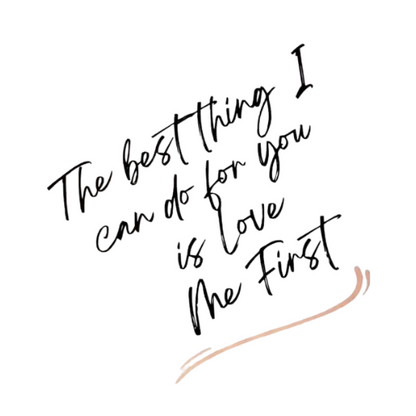 The best thing I
can do for you
is Love
Me First